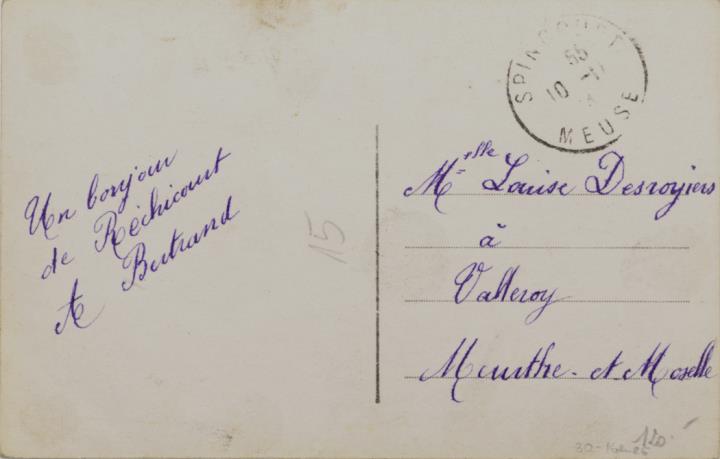 Un bonjour
de Réchicourt
A Bertrand
15
SPINCOURT
10 -11
MEUSE
Mlle Louise Desroyiers
à
Valleroy
Meurthe-et-Moselle
120.